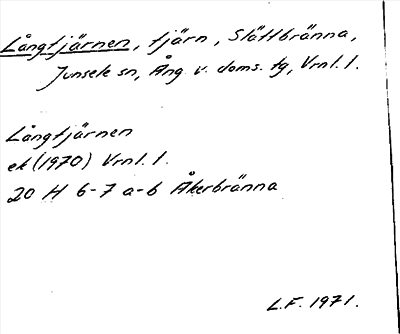 Långtjärnen, tjärn, Slättbränna,
Junsele sn, Ång. v. doms. tg, Vrnl. 1.
Långtjärnen
ek (1970) Vrnl. 1.
20 H 6-7 a-b Åkerbränna
L.F. 1971.